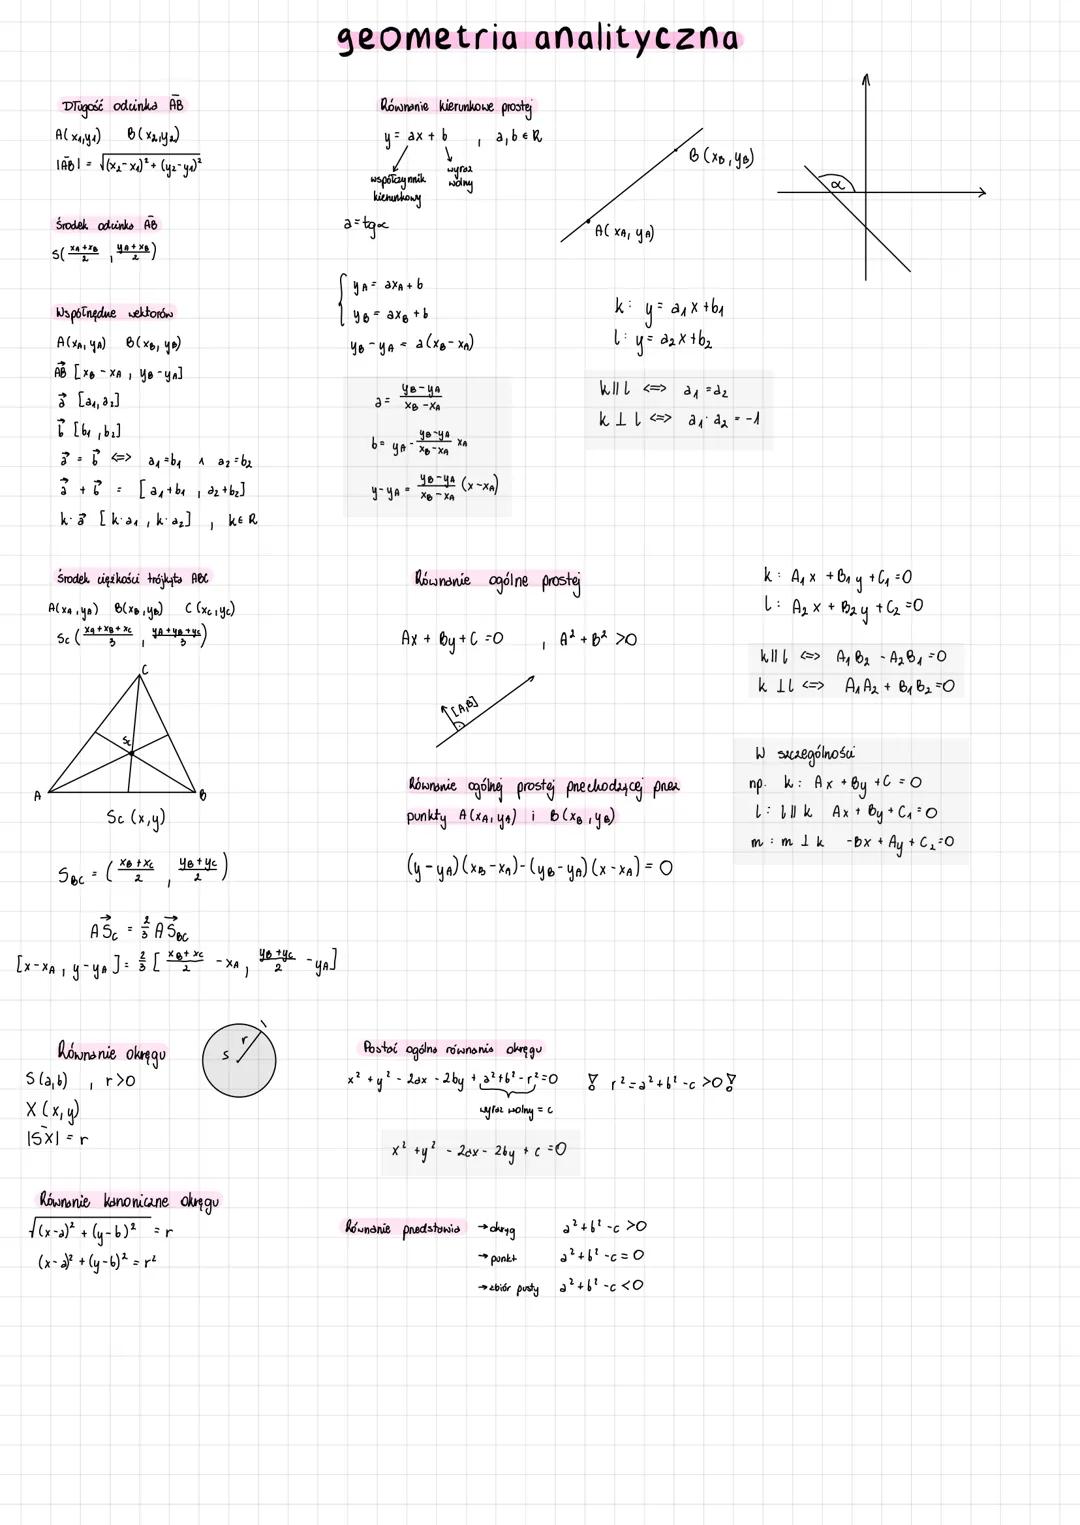 geometria analityczna
Długość odcinka AB
A(x₁,y₁) B(x₂,y₂)
|AB| = √(x₂-x₁)² + (y₂-y₁)²
Środek odcinka AB
S(xA+xB/2 , yA+xB/2)
Współrzędne wektorów
A(xA, yA) B(xB, yB)
AB [xB - xA , yB - yA]
a [a₁, a₂]
b [b₁, b₂]
a = b <=> a₁=b₁ ∧ a₂=b₂
a + b = [a₁+b₁ , a₂+b₂]
k·a [k·a₁ , k·a₂] , k∈R
Równanie kierunkowe prostej
y = ax + b , a,b ∈ R
współczynnik kierunkowy
wyraz wolny
a=tgα
yA = axA + b
yB = axB + b
yB - yA = a(xB - xA)
a = yB-yA/xB-xA
b = yA - yB-yA/xB-xA xA
y-yA = yB-yA/xB-xA (x-xA)
B(xB, yB)
A(xA, yA)
α
k: y = a₁x+b₁
l: y = a₂x+b₂
k||l <=> a₁=a₂
k ⊥ l <=> a₁·a₂ = -1
Środek ciężkości trójkąta ABC
A(xA, yA) B(xB, yB) C(xC, yC)
Sc (xA+xB+xC/3 , yA+yB+yC/3)
C
Sc
A
B
Sc (x,y)
SBC = (xB+xC/2 , yB+yC/2)
ASc = 2/3 ASBC
[x-xA , y-yA] = 2/3 [xB+xC/2 - xA , yB+yC/2 - yA]
Równanie ogólne prostej
Ax + By + C = 0 , A² + B² > 0
[A,B]
Równanie ogólnej prostej przechodzącej przez
punkty A(xA, yA) i B(xB, yB)
(y-yA)(xB-xA)-(yB-yA)(x-xA) = 0
k: A₁x + B₁y + C₁ = 0
l: A₂x + B₂y + C₂ = 0
k||l <=> A₁B₂ - A₂B₁ = 0
k ⊥ l <=> A₁A₂ + B₁B₂ = 0
W szczególności
np. k: Ax + By + C = 0
l: l||k Ax + By + C₁ = 0
m: m ⊥ k -Bx + Ay + C₂ = 0
Równanie okręgu
S(a,b) , r>0
X(x,y)
|SX| = r
S
r
Równanie kanoniczne okręgu
√(x-a)² + (y-b)² = r
(x-a)² + (y-b)² = r²
Postać ogólna równania okręgu
x² + y² - 2ax - 2by + a²+b²-r²=0 ! r²=a²+b²-c>0 !
wyraz wolny = c
x² + y² - 2ax - 2by + c = 0
Równanie przedstawia → okrąg a²+b²-c > 0
→ punkt a²+b²-c = 0
→ zbiór pusty a²+b²-c < 0